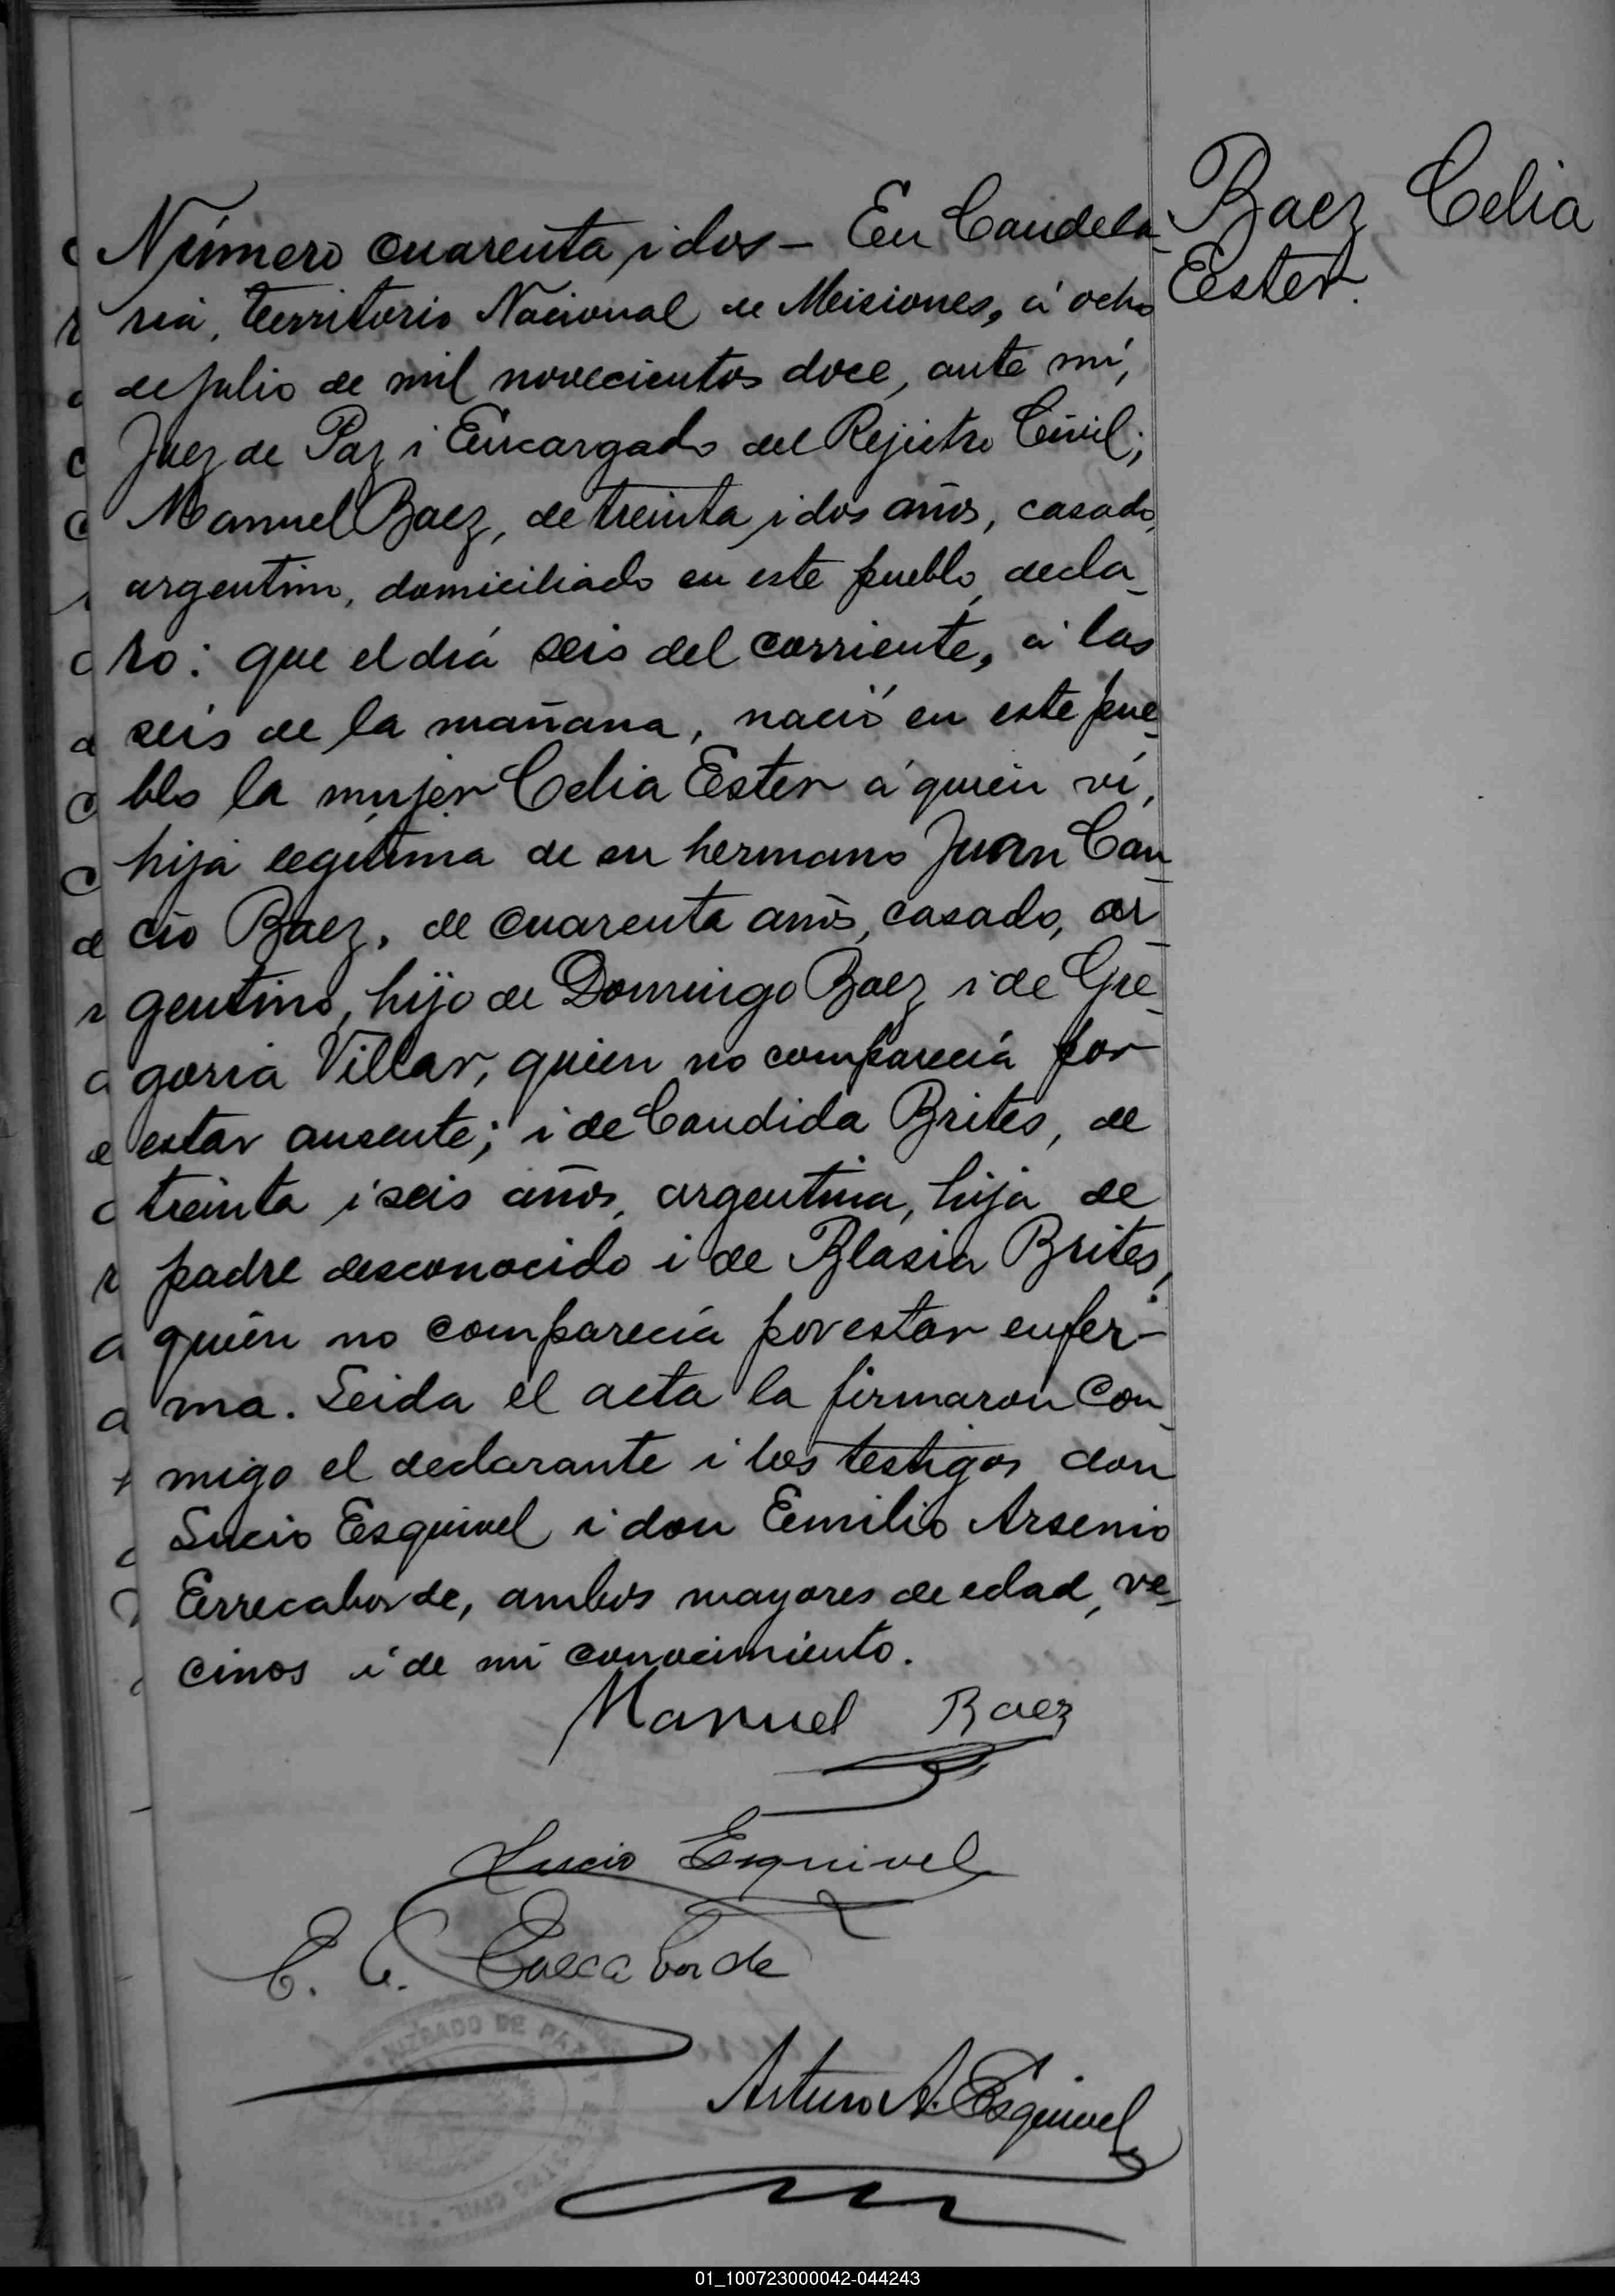 Baez Celia
Ester.
Número cuarenta i dos — En Candela-
ria, territorio Nacional de Misiones, á ocho
de julio de mil novecientos doce, ante mí,
Juez de Paz i Encargado del Rejistro Civil;
Manuel Baez, de treinta i dos años, casado,
argentino, domiciliado en este pueblo, decla-
ro: que el día seis del corriente, á las
seis de la mañana, nació en este pue-
blo la mujer Celia Ester á quien vi,
hija legítima de su hermano Juan Can-
cio Baez, de cuarenta años, casado, ar-
gentino, hijo de Domingo Baez i de Gre-
goria Villar, quien no comparecía por
estar ausente; i de Candida Brites, de
treinta i seis años, argentina, hija de
padre desconocido i de Blasia Brites,
quien no comparecía por estar enfer-
ma. Leida el acta la firmaron con-
migo el declarante i los testigos don
Lucio Esquivel i don Emilio Arsenio
Errecaborde, ambos mayores de edad, ve-
cinos i de mi conocimiento.
Manuel Baez
Lucio Esquivel
E. A. Errecaborde
JUZGADO DE PAZ
Arturo A. Esquivel
REGISTRO CIVIL
01_100723000042-044243